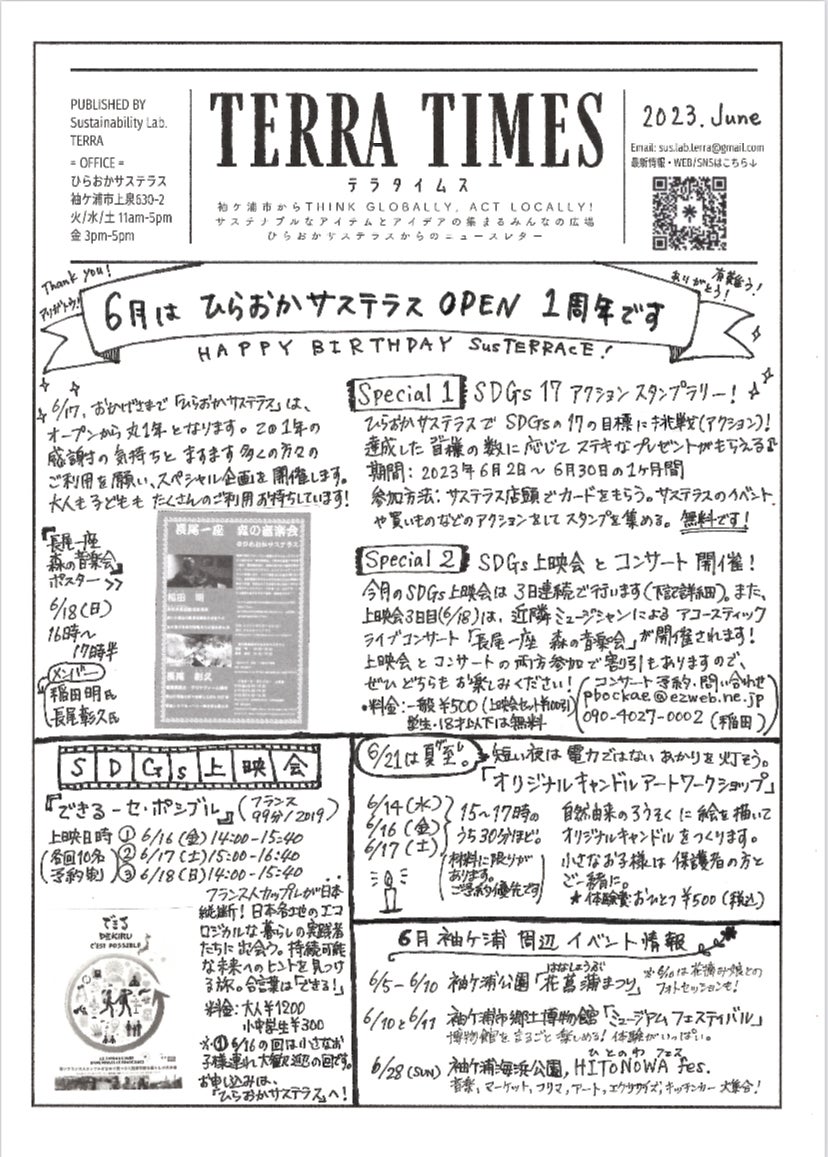 PUBLISHED BY
Sustainability Lab.
TERRA
= OFFICE =
ひらおかサステラス
袖ケ浦市上泉630-2
火/水/土 11am-5pm
金 3pm-5pm
TERRA TIMES
テラタイムス
袖ケ浦市からTHINK GLOBALLY, ACT LOCALLY!
サステナブルなアイテムとアイデアの集まるみんなの広場
ひらおかサステラスからのニュースレター
2023.June
Email: sus.lab.terra@gmail.com
最新情報・WEB/SNSはこちら↓
Thank you!
アリガトウ!
有難う!
ありがとう!
6月は ひらおかサステラス OPEN 1周年です
HAPPY BIRTHDAY SusTERRAcE!
6/17、おかげさまで「ひらおかサステラス」は、
オープンから丸1年となります。この1年の
感謝の気持ちと ますます多くの方々の
ご利用を願い、スペシャル企画を開催します。
大人も子どもも たくさんのご利用お待ちしています!
『長尾一座
森の音楽会』
ポスター >>
6/18(日)
16時〜
17時半
メンバー
稲田明氏
長尾彰久氏
長尾一座 森の音楽会
@ひらおかサステラス
稲田 明
長尾 彰久
Special 1 SDGs 17 アクション スタンプラリー!
ひらおかサステラスで SDGsの17の目標に挑戦(アクション)!
達成した皆様の数に応じて ステキなプレゼントがもらえる♪
期間: 2023年6月2日〜6月30日の1ヶ月間
参加方法: サステラス店頭でカードをもらう。サステラスのイベント
や買いものなどのアクションをしてスタンプを集める。無料です!
Special 2 SDGs上映会 と コンサート 開催!
今月のSDGs上映会は 3日連続で行います(下記詳細)。また、
上映会3日目(6/18)は、近隣ミュージシャンによる アコースティック
ライブコンサート「長尾一座 森の音楽会」が開催されます!
上映会とコンサートの両方参加で割引もありますので、
ぜひどちらもお楽しみください!
・料金:一般 ¥500 (上映会セット¥100引)
学生・18才以下は無料
コンサート予約・問い合わせ
pbockae@ezweb.ne.jp
090-4027-0002 (稲田)
SDGs上映会
『できる―セ・ポシブル』(フランス 99分/2019)
上映日時 ① 6/16(金)14:00-15:40
(各回10名 ② 6/17(土)15:00-16:40
予約制) ③ 6/18(日)14:00-15:40
フランス人カップルが日本
縦断! 日本各地のエコ
ロジカルな暮らしの実践者
たちに出会う。持続可能
な未来へのヒントを見つけ
る旅。合言葉は「できる!」
料金: 大人¥1200
小中学生¥300
※①6/16の回は小さなお
子様連れ大歓迎の回です。
お申し込みは、
「ひらおかサステラス」へ!
できる
DEKIRU
C'EST POSSIBLE
6/21は夏至。
短い夜は 電力ではない あかりを灯そう。
「オリジナルキャンドル アートワークショップ」
6/14(水)
6/16(金)
6/17(土)
15〜17時の
うち30分ほど。
材料に限りが
あります。
ご予約優先です
自然由来のろうそくに絵を描いて
オリジナルキャンドルをつくります。
小さなお子様は 保護者の方と
ご一緒に。
★体験費:おひとつ ¥500 (税込)
6月 袖ケ浦 周辺 イベント情報
6/5-6/10 袖ケ浦公園「花菖蒲まつり」
はなしょうぶ
※6/10は花摘み娘との
フォトセッションも!
6/10と6/11 袖ケ浦市郷土博物館「ミュージアム フェスティバル」
博物館をまるごと楽しめる! 体験がいっぱい。
6/28(SUN) 袖ケ浦海浜公園, HITONOWA fes.
ひとのわ フェス
音楽, マーケット, フリマ, アート, エクササイズ, キッチンカー 大集合!